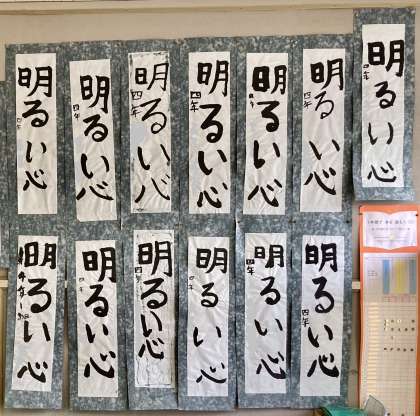 明るい心
四年
明るい心
四年
明るい心
四年
明るい心
四年
明るい心
明るい心
四年
明るい心
四年
明るい心
明るい心
四年
明るい心
四年
明るい心
四年
明るい心
四年
明るい心
四年